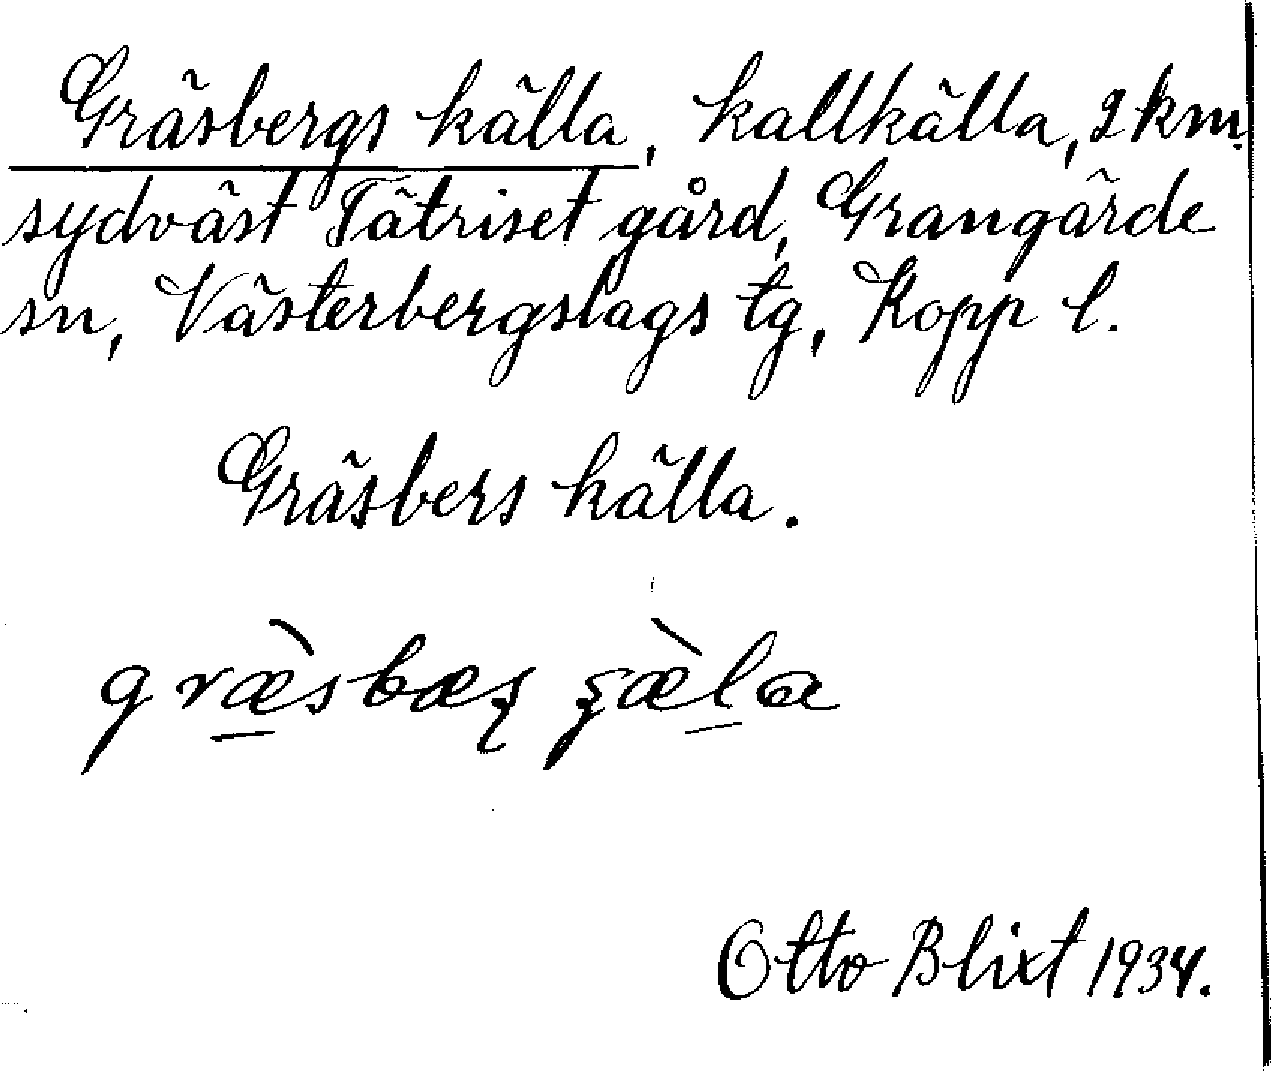 Gräsbergs källa, kallkälla, 2 km.
sydväst Tätriset gård, Grangärde
sn, Västerbergslags tg, Kopp l.
Gräsbers källa.
græ̀sbæʂ ʂæ̀la
Otto Blixt 1934.